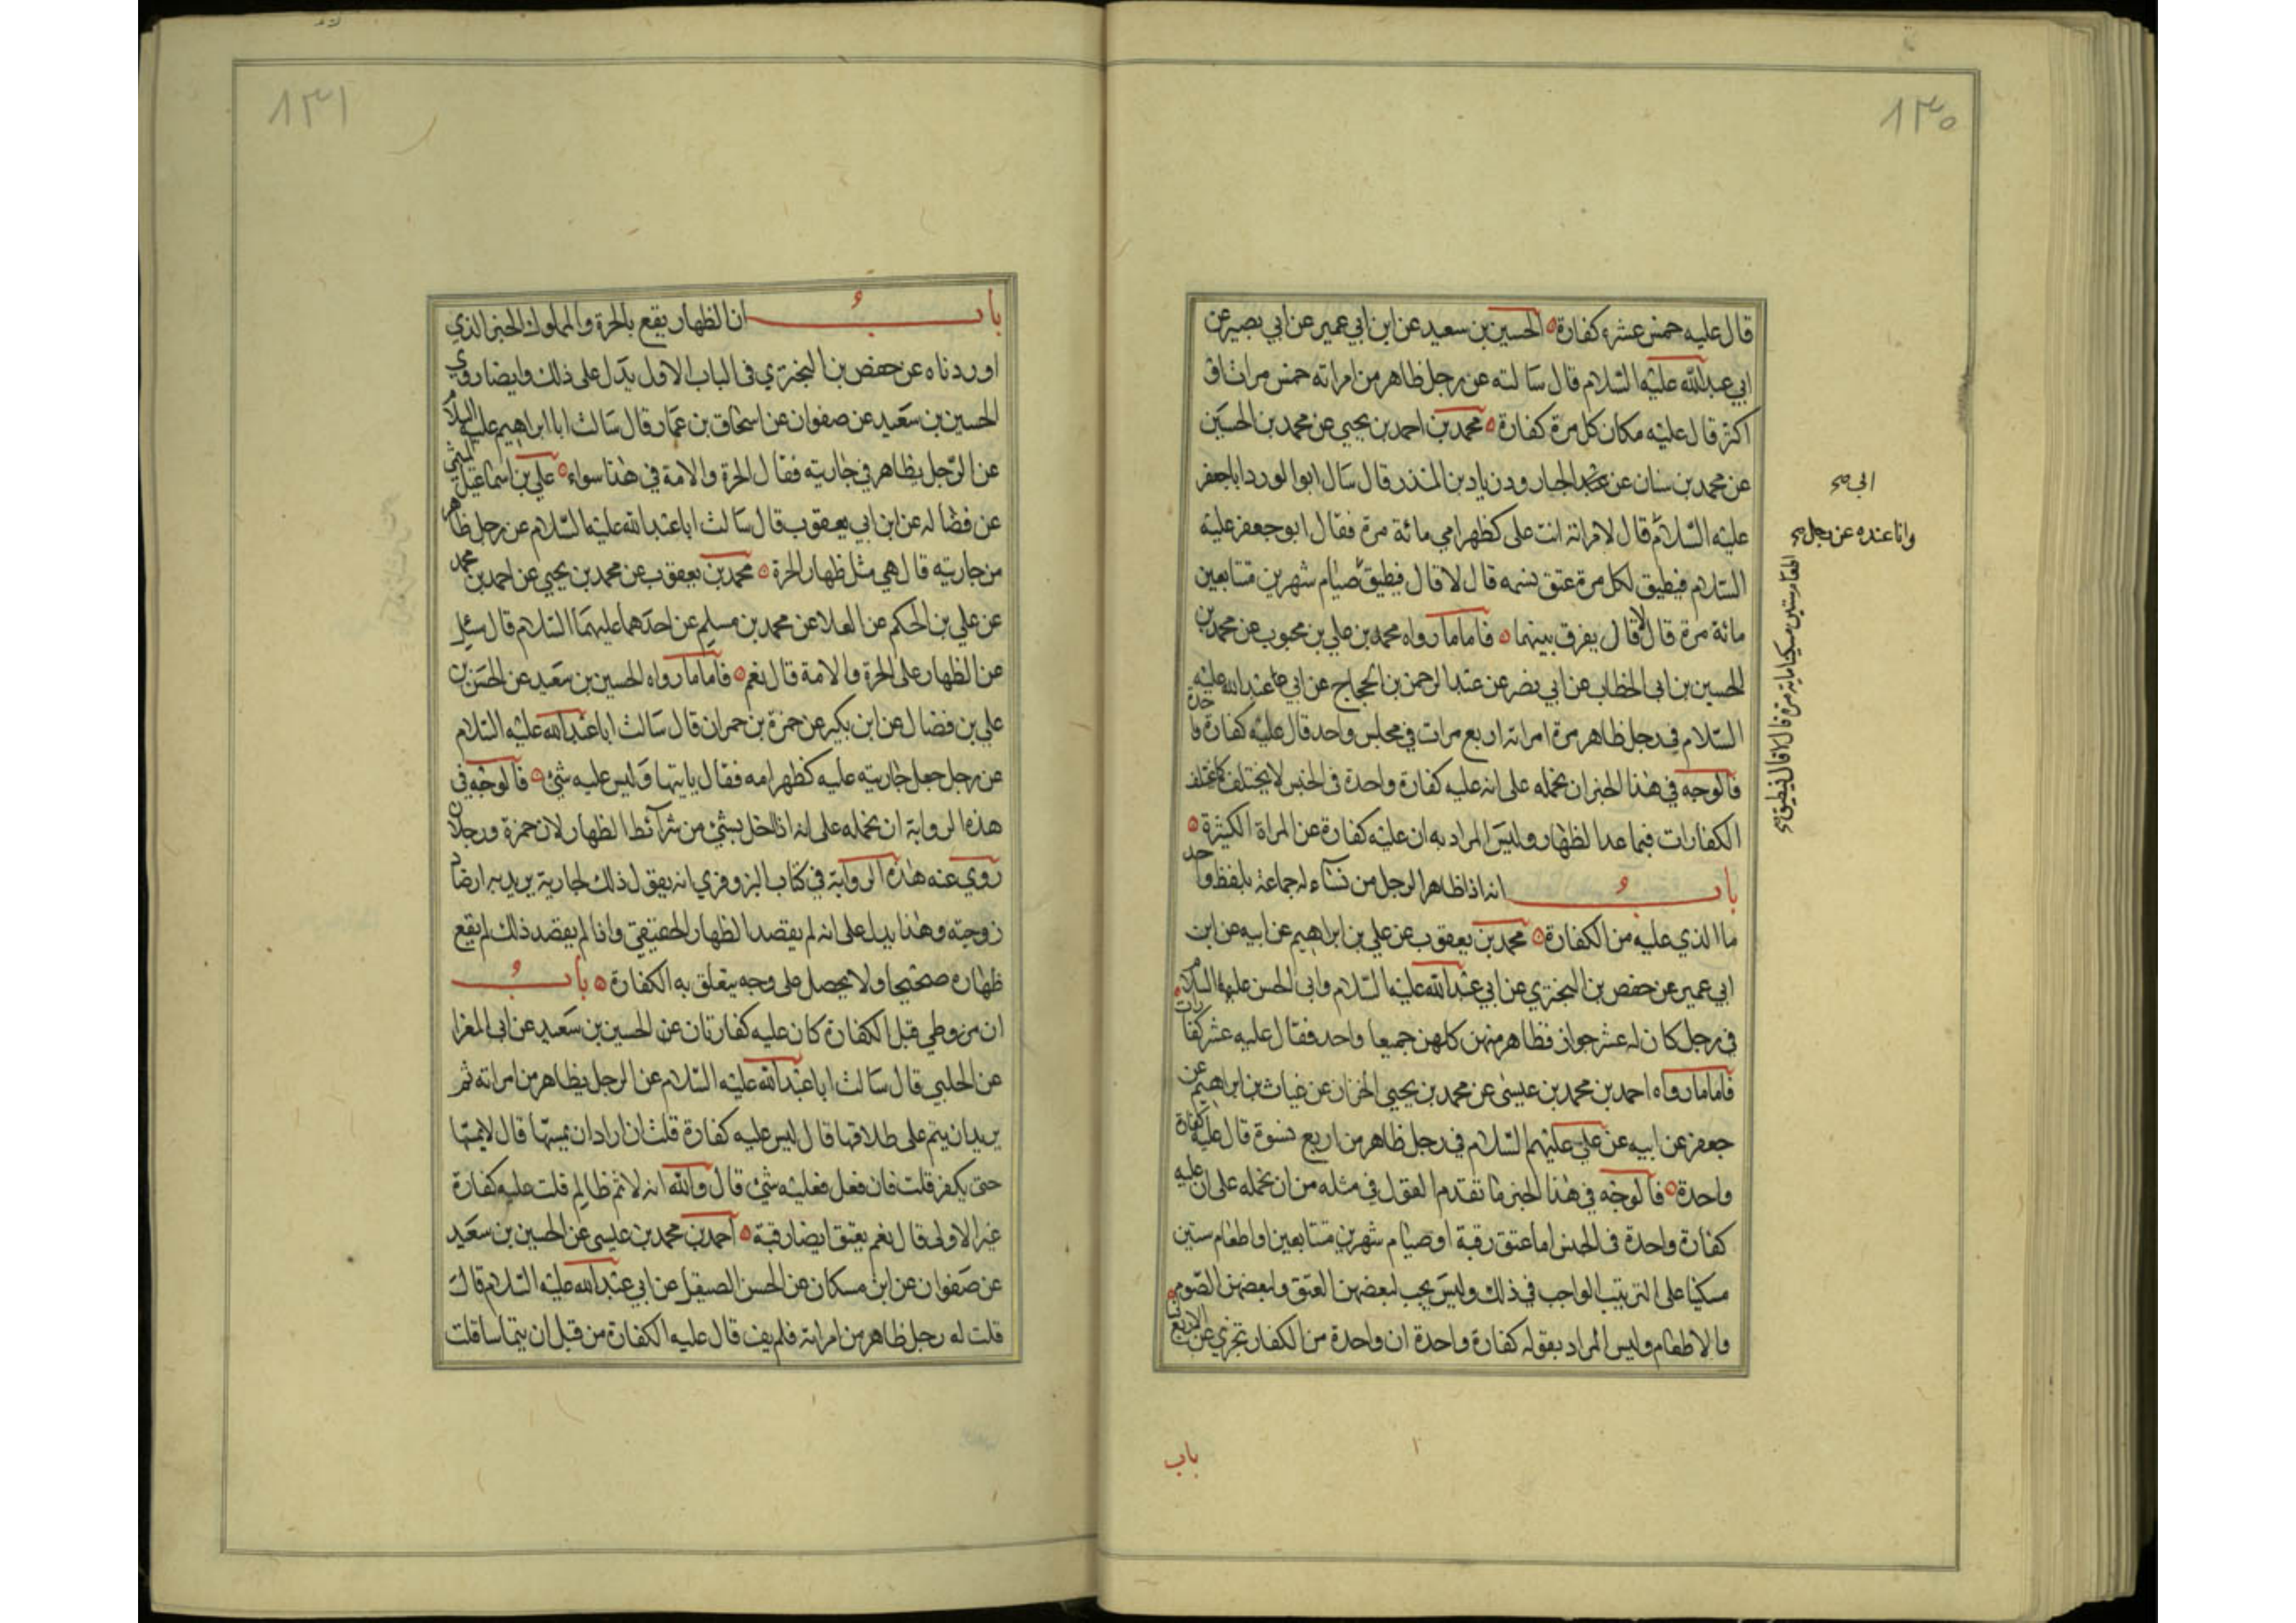 ١٣٠
قال عليه خمس عشرة كفارة الحسين بن سعيد عن ابن ابي عمير عن ابي بصير عن
ابي عبد الله عليه السلام قال سالته عن رجل ظاهر من امراته خمس مرات او
اكثر قال عليه مكان كل مرة كفارة محمد بن احمد بن يحيي عن محمد بن الحسين
عن محمد بن سنان عن الجارود بن زياد بن المنذر قال سال ابو الورد ابا جعفر
عليه السلام قال لامراته انت على كظهر امي مائة مرة فقال ابو جعفر عليه
السلام فيطيق لكل مرة عتق نسمه قال لا قال فيطيق صيام شهرين متتابعين
مائة مرة قال لا قال يفرق بينهما فاما ما رواه محمد بن علي بن محبوب عن محمد بن
الحسين بن ابى الخطاب عن ابي نصر عن عبد الرحمن بن الحجاج عن ابي عبد الله عليه
السلام في رجل ظاهر مرة امراته اربع مرات في مجلس واحد قال عليه كفارة واحدة
فالوجه في هذا الخبر ان نحمله على انه عليه كفارة واحدة فى الجنس لا يختلف كما تختلف
الكفارات فيما عدا لظهار وليس المراد به ان عليه كفارة عن المراة الكثيرة
باب انه اذا ظاهر الرجل من نساء له جماعة بلفظ واحد
ما الذي عليه من الكفارة محمد بن يعقوب عن علي بن ابراهيم عن ابيه عن ابن
ابي عمير عن حفص بن البختري عن ابي عبد الله عليه السلام وابى الحسن عليه السلام
في رجل كان له عشر جوار فظاهر منهن كلهن جميعا واحد فقال عليه عشر كفارات
فاما ما رواه احمد بن محمد بن عيسى عن محمد بن يحيى الخزاز عن غياث بن ابراهيم عن
جعفر عن ابيه عن علي عليهم السلام في رجل ظاهر من اربع نسوة قال عليه كفارة
واحدة فالوجه في هذا الخبر ما تقدم القول في مثله من ان نحمله على ان عليه
كفارة واحدة فى الجنس اما عتق رقبة او صيام شهرين متتابعين او اطعام ستين
مسكينا على الترتيب الواجب في ذلك وليس يجب لبعضهن العتق ولبعضهن الصوم
والاطعام وليس المراد بقوله كفارة واحدة ان واحدة من الكفار تجزي عن الاربع
باب
ابى صح
وانا عنده عن رجل صح
اطعام ستين مسكينا ماية مرة قال لا قال فيطيق صح
١٣١
باب ان الظهار يقع بالحرة والمملوك الخبر الذي
اوردناه عن حفص بن البختري فى الباب الاول يدل على ذلك وايضا روي
الحسين بن سعيد عن صفوان عن اسحاق بن عمار قال سالت ابا ابراهيم عليه السلام
عن الرجل يظاهر في جاريته فقال الحرة والامة في هذا سواء علي بن اسماعيل الميثمي
عن فضاله عن ابن ابي يعقوب قال سالت ابا عبد الله عليه السلام عن رجل ظاهر
من جاريته قال هي مثل ظهار الحرة محمد بن يعقوب عن محمد بن يحيي عن احمد بن محمد
عن علي بن الحكم عن العلا عن محمد بن مسلم عن احدهما عليهما السلام قال سئل
عن الظهار على الحرة والامة قال نعم فاما ما رواه الحسين بن سعيد عن الحسن بن
علي بن فضال عن ابن بكير عن حمزة بن حمران قال سالت ابا عبد الله عليه السلام
عن رجل جعل جاريته عليه كظهر امه فقال ياتيها وليس عليه شئ فالوجه في
هذه الرواية ان نحمله على انه اذا اخل بشئ من شرائط الظهار لان حمزة
روي عنه هذه الرواية في كتاب البزوفري انه يقول ذلك لجارية يريد به ارضا
زوجته وهذا يدل على انه لم يقصد الظهار الحقيقي واذا لم يقصد ذلك لم يقع
ظهاره صحيحا ولا يحصل على وجه يتعلق به الكفارة باب
ان من وطي قبل الكفارة كان عليه كفارتان عن الحسين بن سعيد عن ابى المغرا
عن الحلبي قال سالت ابا عبد الله عليه السلام عن الرجل يظاهر من امراته ثم
يريد ان يتم على طلاقها قال ليس عليه كفارة قلت ان اراد ان يمسها قال لا يمسها
حتى يكفر قلت فان فعل فعليه شئ قال والله انه لاثم ظالم قلت عليه كفارة
غير الاولى قال نعم يعتق ايضا رقبة احمد بن محمد بن عيسى عن الحسين بن سعيد
عن صفوان عن ابن مسكان عن الحسن الصيقل عن ابي عبد الله عليه السلام قال
قلت له رجل ظاهر من امراته فلم يف قال عليه الكفارة من قبل ان يتماسا قلت